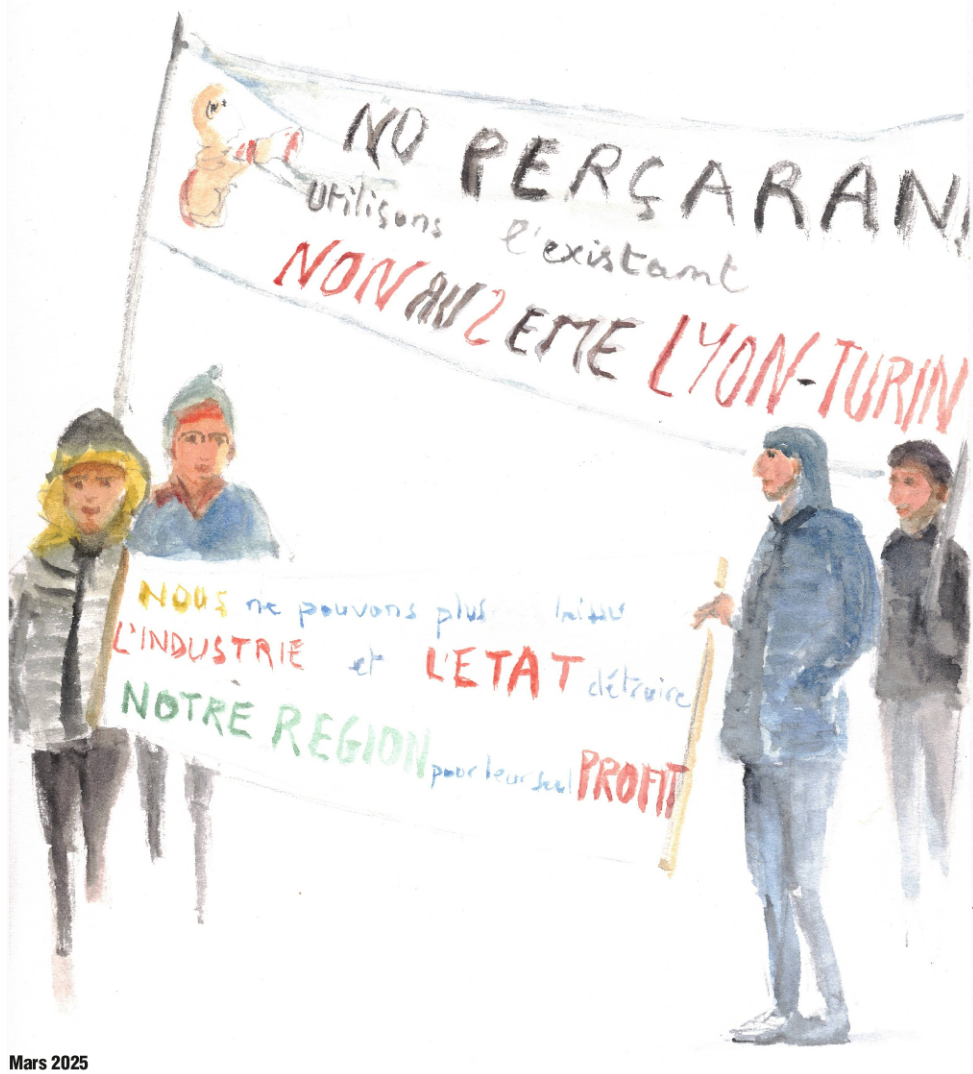 NO PERÇARAN
utilisons l'existant
NON AU 2 EME LYON-TURIN
NOUS ne pouvons plus
L'INDUSTRIE et L'ETAT détruire
NOTRE REGION pour leur seul PROFIT
Mars 2025